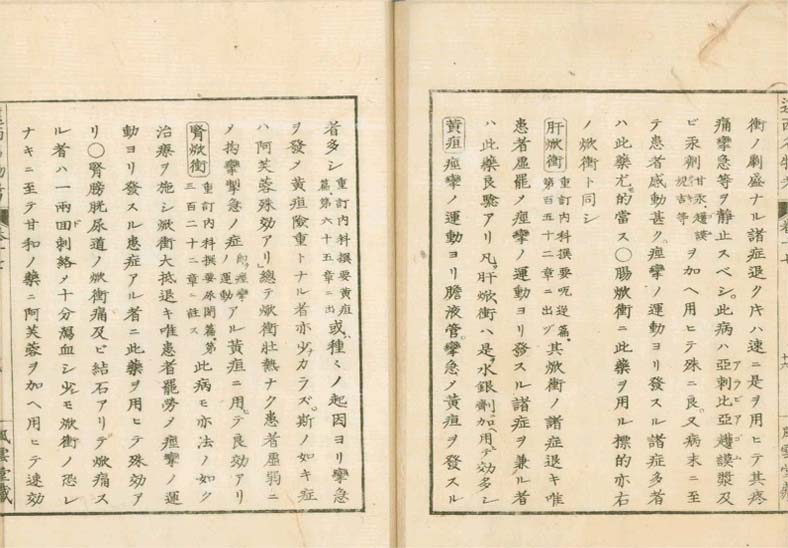 衝ノ劇盛ナル諸症退ク片ハ速ニ是ヲ用ヒテ其疼
痛攣急等ヲ静止スベシ此病ハ亞刺比亞護謨漿及
ビ汞劑甘汞護謨ヲ加ヘ用ヒテ殊ニ良又病末ニ至
テ患者感動甚ク痙攣ノ運動ヨリ發スル諸症多者
ハ此藥尤的當ス〇腸焮衝ニ此藥ヲ用ル標的亦右
ノ焮衝ト同シ
肝焮衝 重訂内科撰要呃逆篇第百五十二章ニ出ヅ 其焮衝ノ諸症退キ唯
患者虚罷ノ痙攣ノ運動ヨリ發スル諸症ヲ兼ル者
ハ此藥良驗アリ凡肝焮衝ハ是水銀劑加ヘ用テ効多シ
黄疸 痙攣ノ運動ヨリ膽液管攣急メ黄疸ヲ發スル
者多シ 重訂内科撰要黄疸篇第六十五章ニ出 或種々ノ起因ヨリ攣急
ヲ發メ黄疸險重トナル者亦少カラズ斯ノ如キ症
ハ阿芙蓉殊効アリ總テ焮衝壮熱ナク患者虚弱ニ
メ拘攣掣急ノ症即痙攣ノ運動アル黄疸ニ用テ良効アリ
腎焮衝 重訂内科撰要尿閉篇第三百二十二章ニ註ス 此病モ亦法ノ如ク
治療ヲ施シ焮衝大抵退キ唯患者罷勞メ痙攣ノ運
動ヨリ發スル患症アル者ニ此藥ヲ用ヒテ殊効ア
リ〇腎膀胱尿道ノ焮衝痛及ビ結石アリテ焮痛ス
ル者ハ一兩回刺絡メ十分瀉血シ少モ焮衝ノ恐レ
ナキニ至テ甘和ノ藥ニ阿芙蓉ヲ加ヘ用ヒテ速効
風雲堂藏